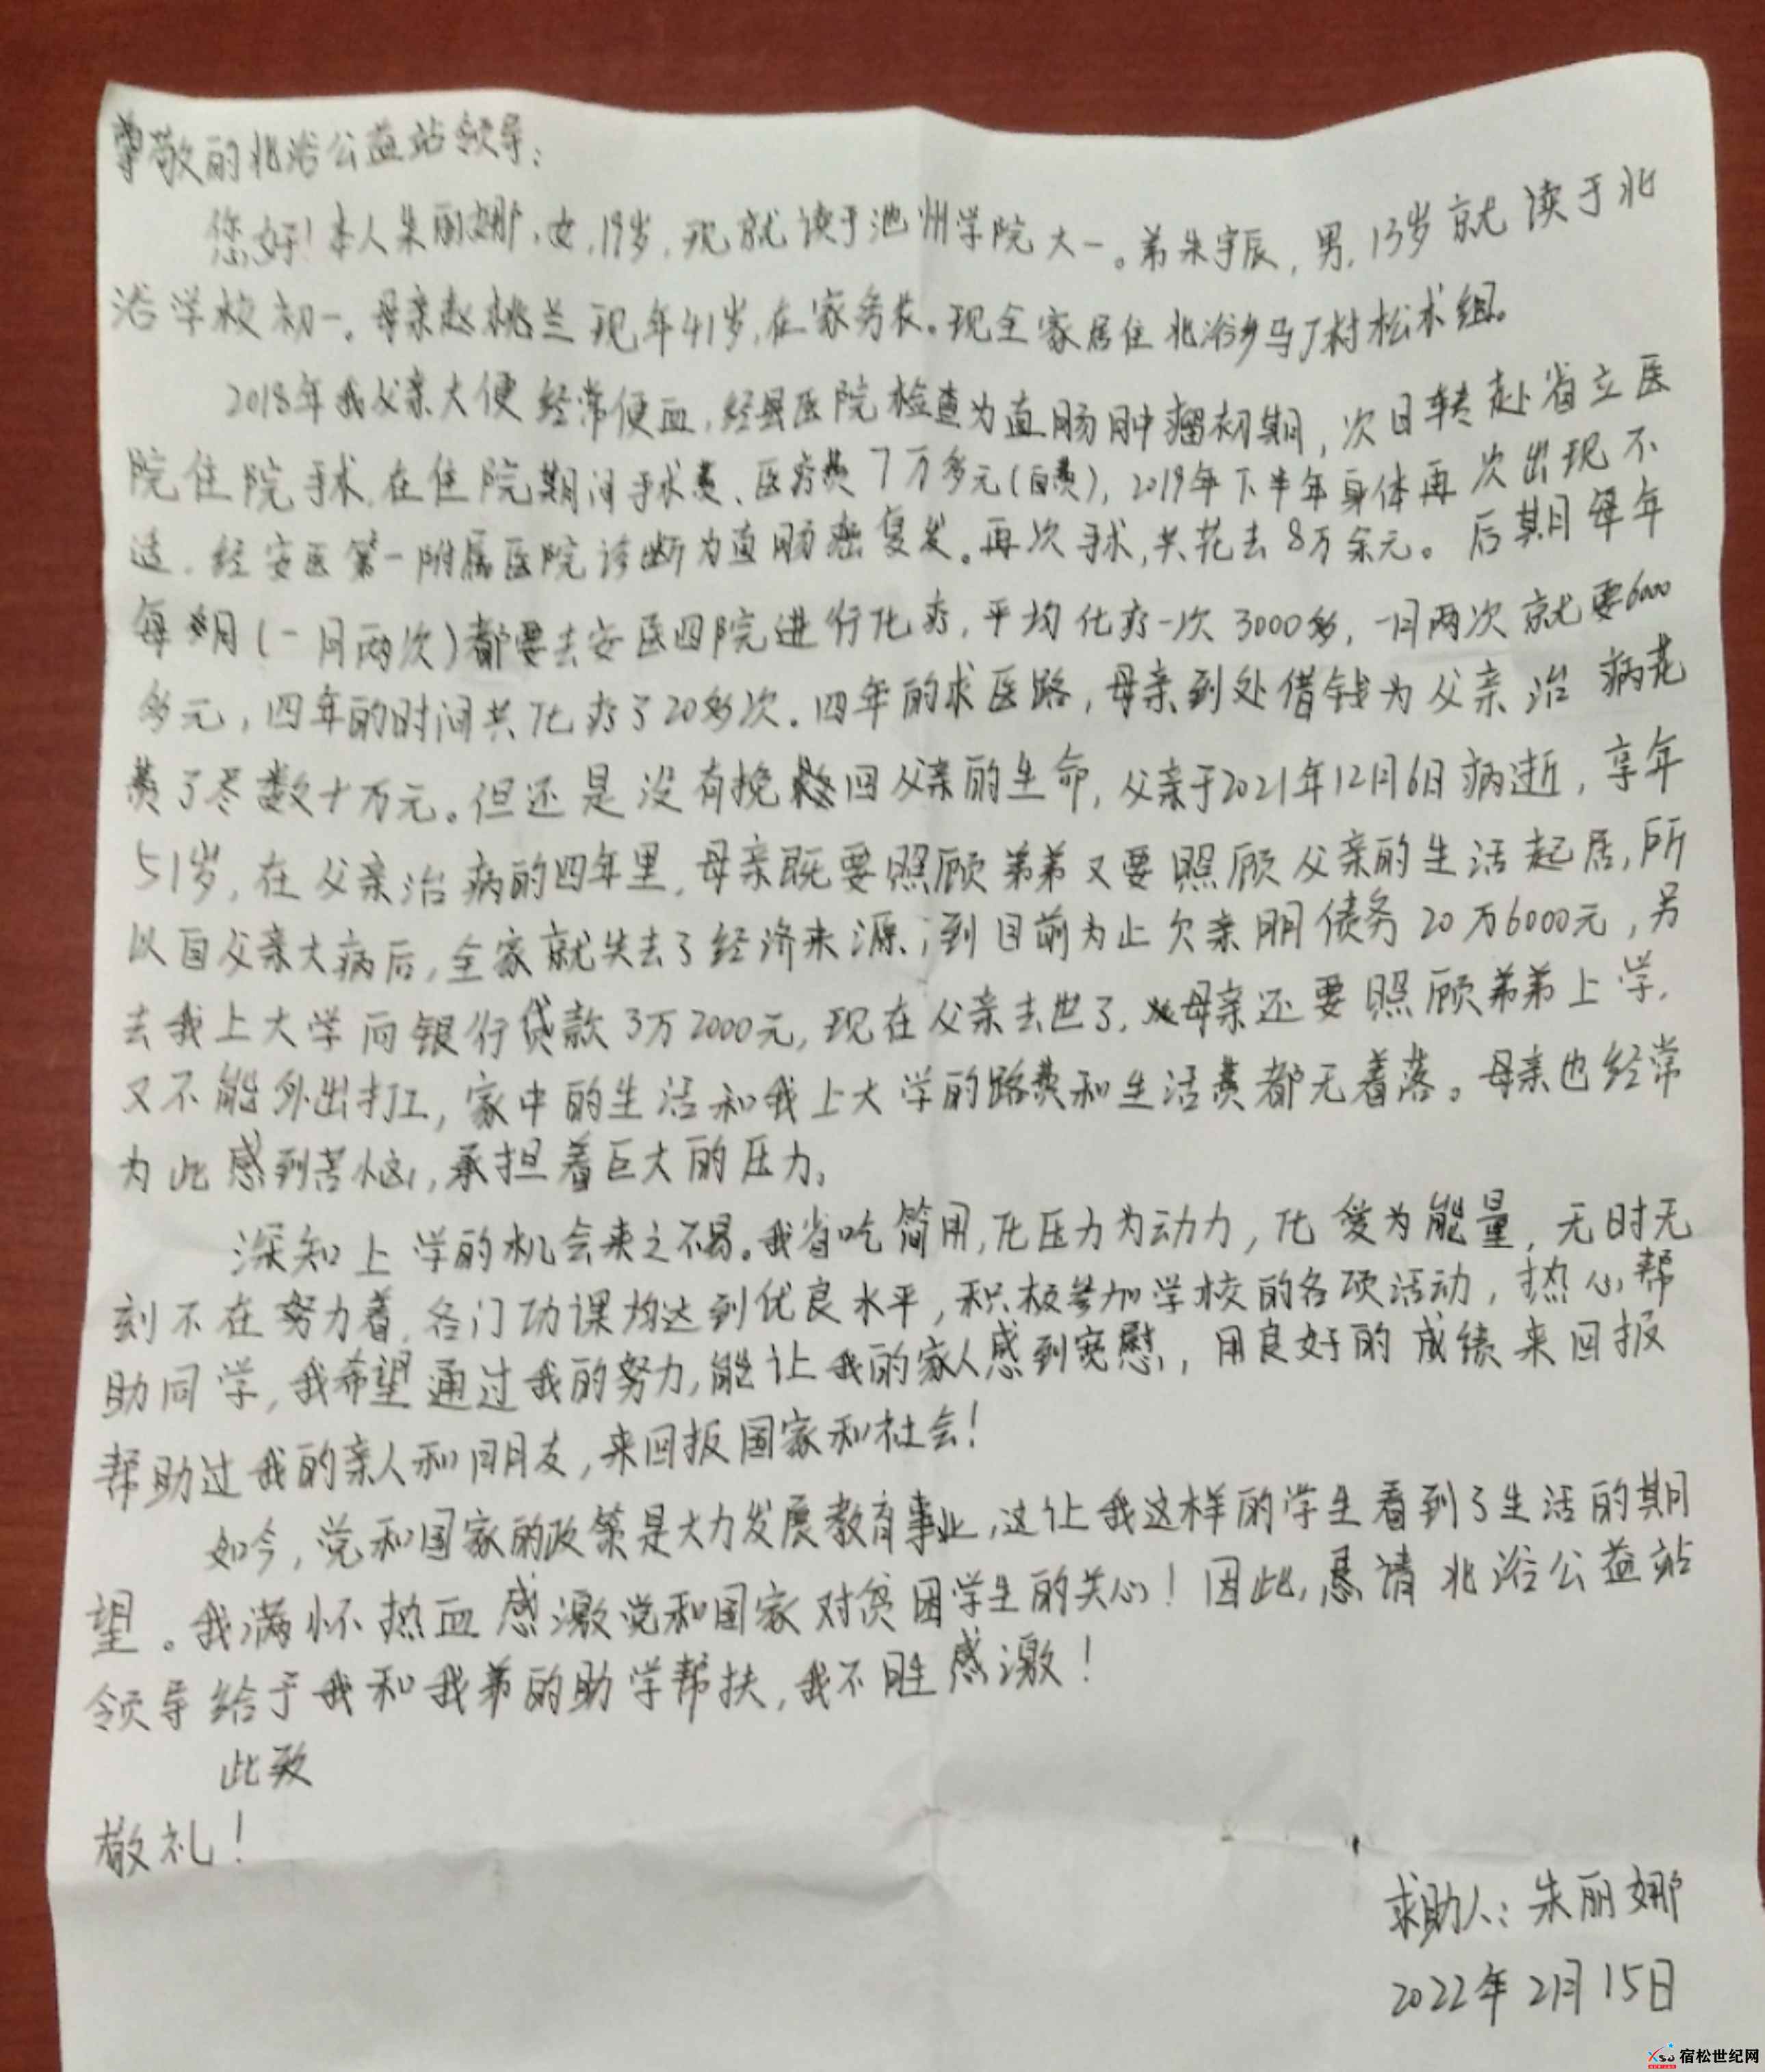 尊敬的北浴公益站领导：
您好！本人朱丽娜，女，19岁，现就读于池州学院大一。弟朱宇辰，男，13岁就读于北
浴学校初一。母亲赵桃兰现年41岁，在家务农。现全家居住北浴乡马丁村松术组。
2018年我父亲大便经常便血，经县医院检查为直肠肿瘤初期，次日转赴省立医
院住院手术，在住院期间手术费、医疗费7万多元（自费），2019年下半年身体再次出现不
适，经安医第一附属医院诊断为直肠癌复发。再次手术，共花去8万余元。后期每年
每月（一月两次）都要去安医四院进行化疗，平均化疗一次3000多，一月两次就要6000
多元，四年的时间共化疗了20多次。四年的求医路，母亲到处借钱为父亲治病花
费了尽数十万元。但还是没有挽回父亲的生命，父亲于2021年12月6日病逝，享年
51岁，在父亲治病的四年里，母亲既要照顾弟弟又要照顾父亲的生活起居，所
以自父亲大病后，全家就失去了经济来源；到目前为止欠亲朋债务20万6000元，另
去我上大学向银行贷款3万2000元，现在父亲去世了，母亲还要照顾弟弟上学，
又不能外出打工，家中的生活和我上大学的路费和生活费都无着落。母亲也经常
为此感到苦恼，承担着巨大的压力。
深知上学的机会来之不易。我省吃简用，化压力为动力，化爱为能量，无时无
刻不在努力着，各门功课均达到优良水平，积极参加学校的各项活动，热心帮
助同学，我希望通过我的努力，能让我的家人感到宽慰，用良好的成绩来回报
帮助过我的亲人和朋友，来回报国家和社会！
如今，党和国家的政策是大力发展教育事业，这让我这样的学生看到了生活的期
望。我满怀热血感激党和国家对贫困学生的关心！因此，恳请北浴公益站
领导给于我和我弟的助学帮扶，我不胜感激！
此致
敬礼！
求助人：朱丽娜
2022年2月15日
宿松世纪网